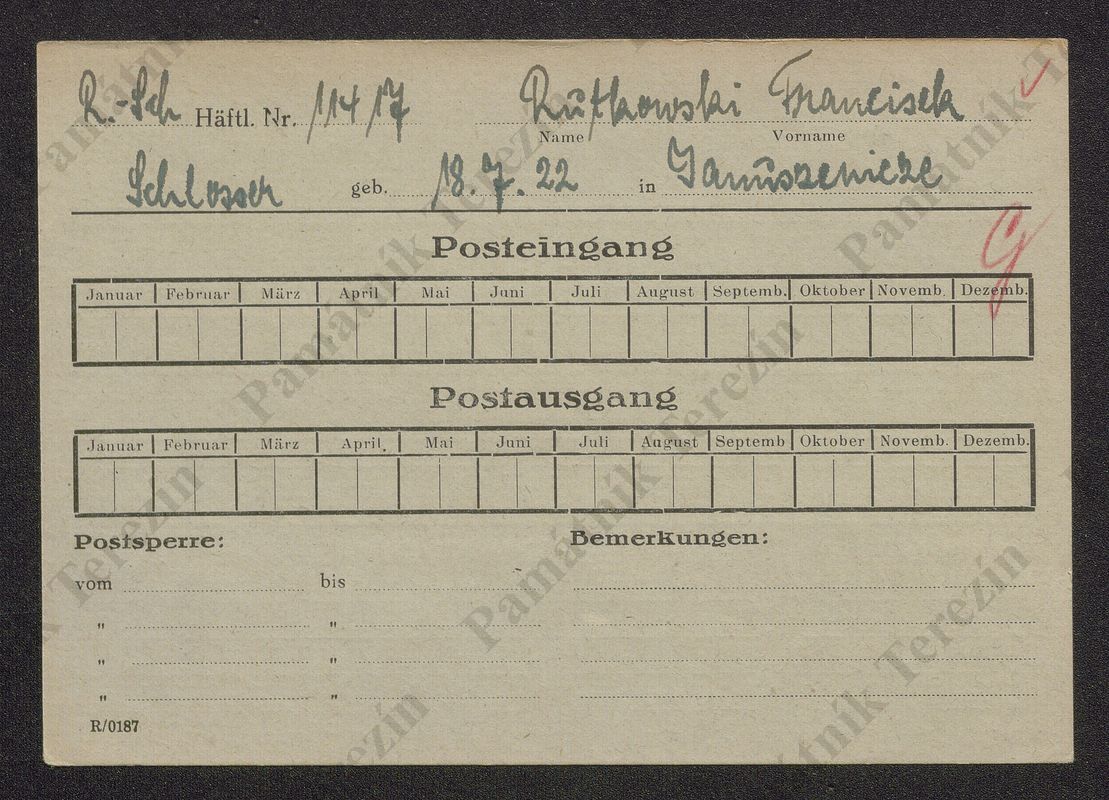 R.-Sch Häftl. Nr. 11417 Rutkowski Francisek
Name Vorname
Schlosser geb. 18.7.22 in Januszewicze
Posteingang
Januar Februar März April Mai Juni Juli August Septemb. Oktober Novemb. Dezemb.
Postausgang
Januar Februar März April. Mai Juni Juli August Septemb Oktober Novemb. Dezemb.
Postsperre: Bemerkungen:
vom bis
" "
" "
" "
R/0187
Památník Terezín